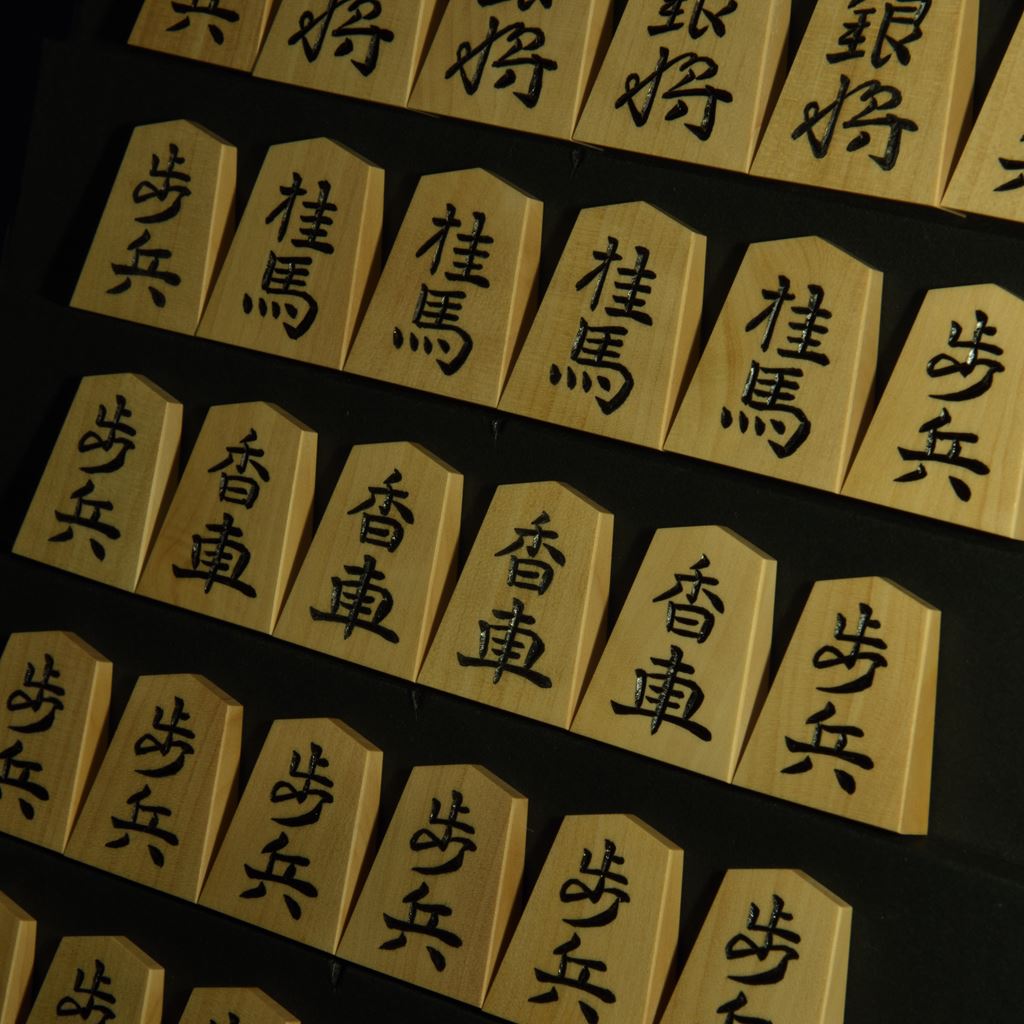 兵
将
将
銀将
銀将
歩兵
桂馬
桂馬
桂馬
桂馬
歩兵
歩兵
香車
香車
香車
香車
歩兵
歩兵
歩兵
歩兵
歩兵
歩兵
歩兵
歩